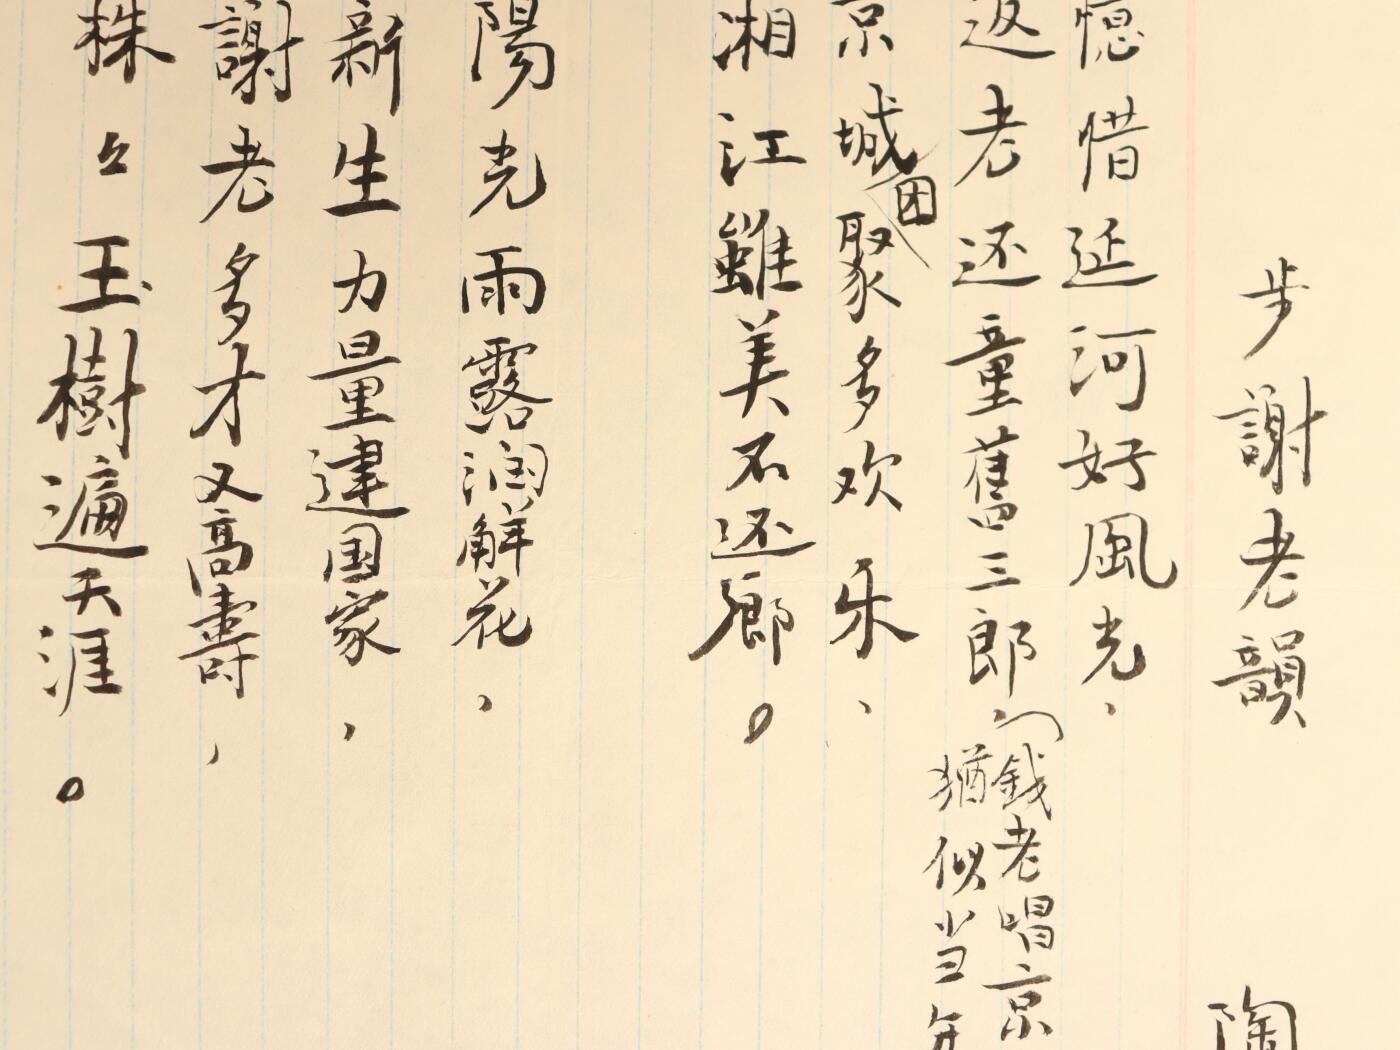 步謝老韻
陶
憶惜延河好風光，
返老还童舊三郎（錢老唱京
猶似当年
京城团聚多欢乐，
湘江雖美不还鄉。
陽光雨露润鮮花，
新生力量建国家，
謝老多才又高壽，
株々玉樹遍天涯。